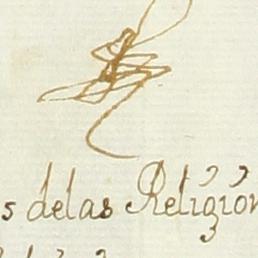 s delas Religión